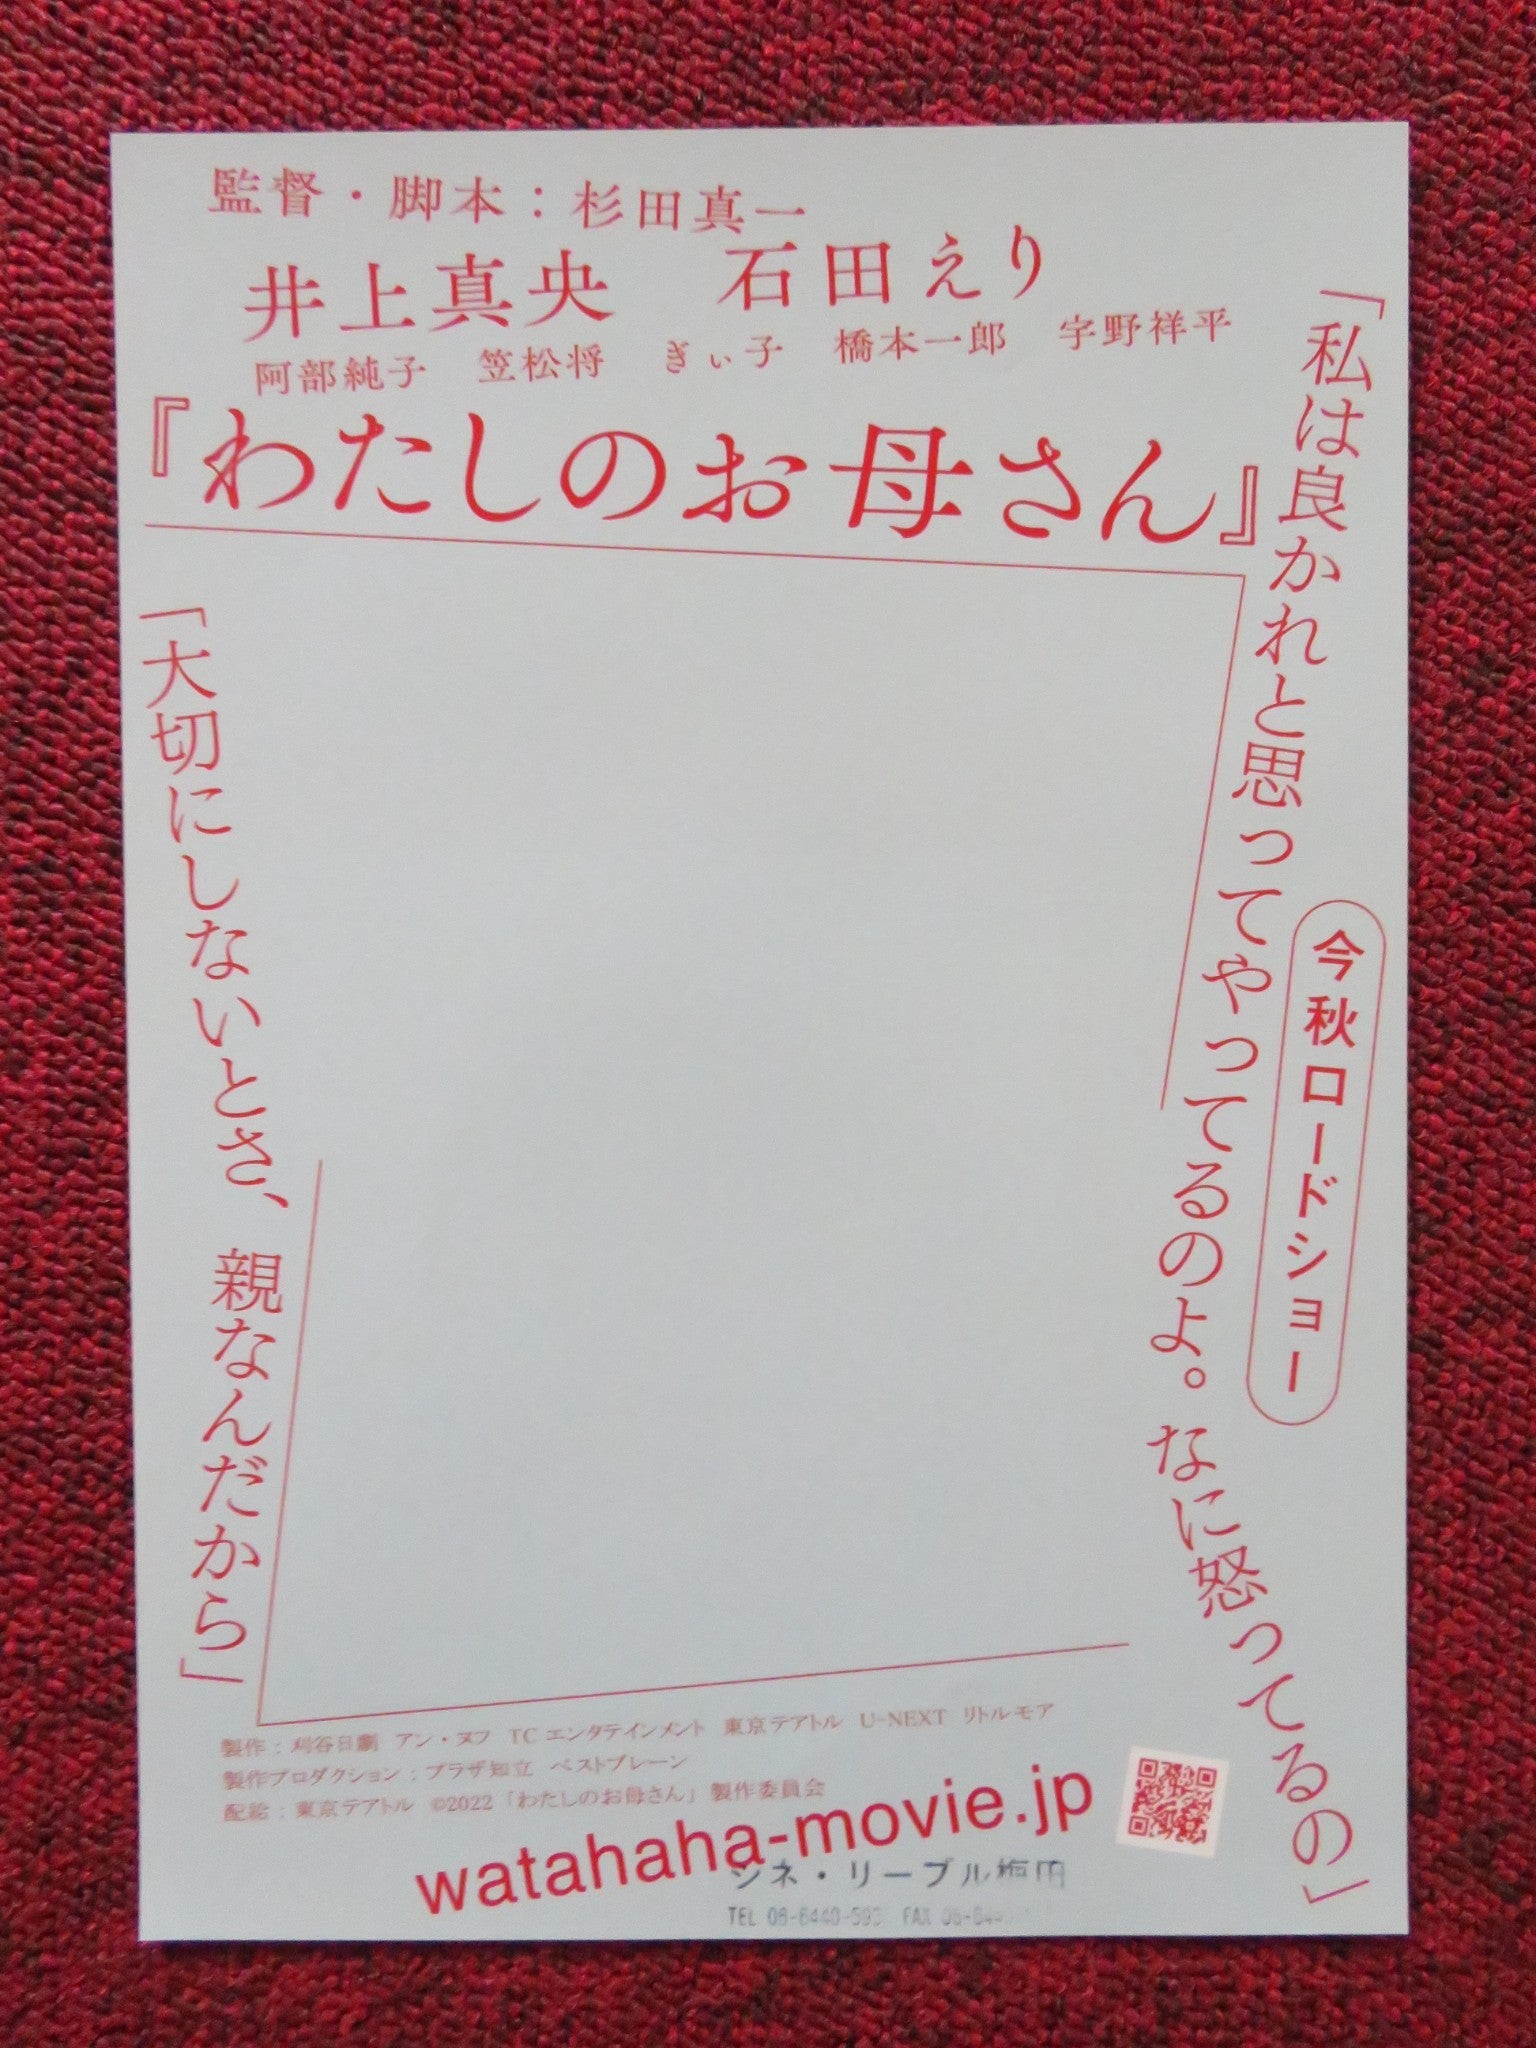 監督・脚本：杉田真一
井上真央　石田えり
阿部純子　笠松将　ぎぃ子　橋本一郎　宇野祥平
『わたしのお母さん』
「私は良かれと思ってやってるのよ。なに怒ってるの」
今秋ロードショー
「大切にしないとさ、親なんだから」
製作：刈谷日劇　アン・ヌフ　TCエンタテインメント　東京テアトル　U-NEXT　リトルモア
製作プロダクション：プラザ知立　ベストブレーン
配給：東京テアトル　©2022「わたしのお母さん」製作委員会
watahaha-movie.jp
シネ・リーブル梅田
TEL 06-6440-593 FAX 06-644